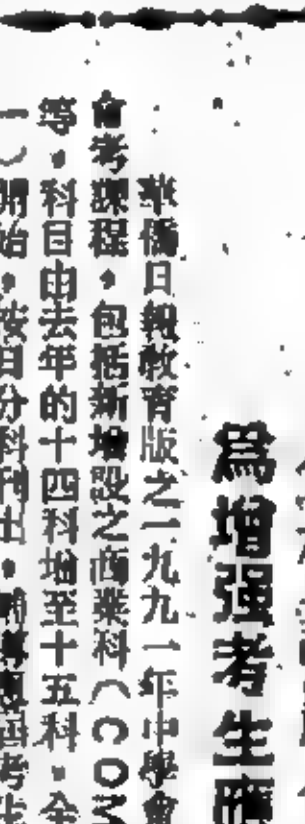 爲增强考生應
華僑日報教育版之一九九一年中學會
會考課程，包括新增設之商業科（COM
等，科目由去年的十四科增至十五科。全
一）開始，按日分科刊出，